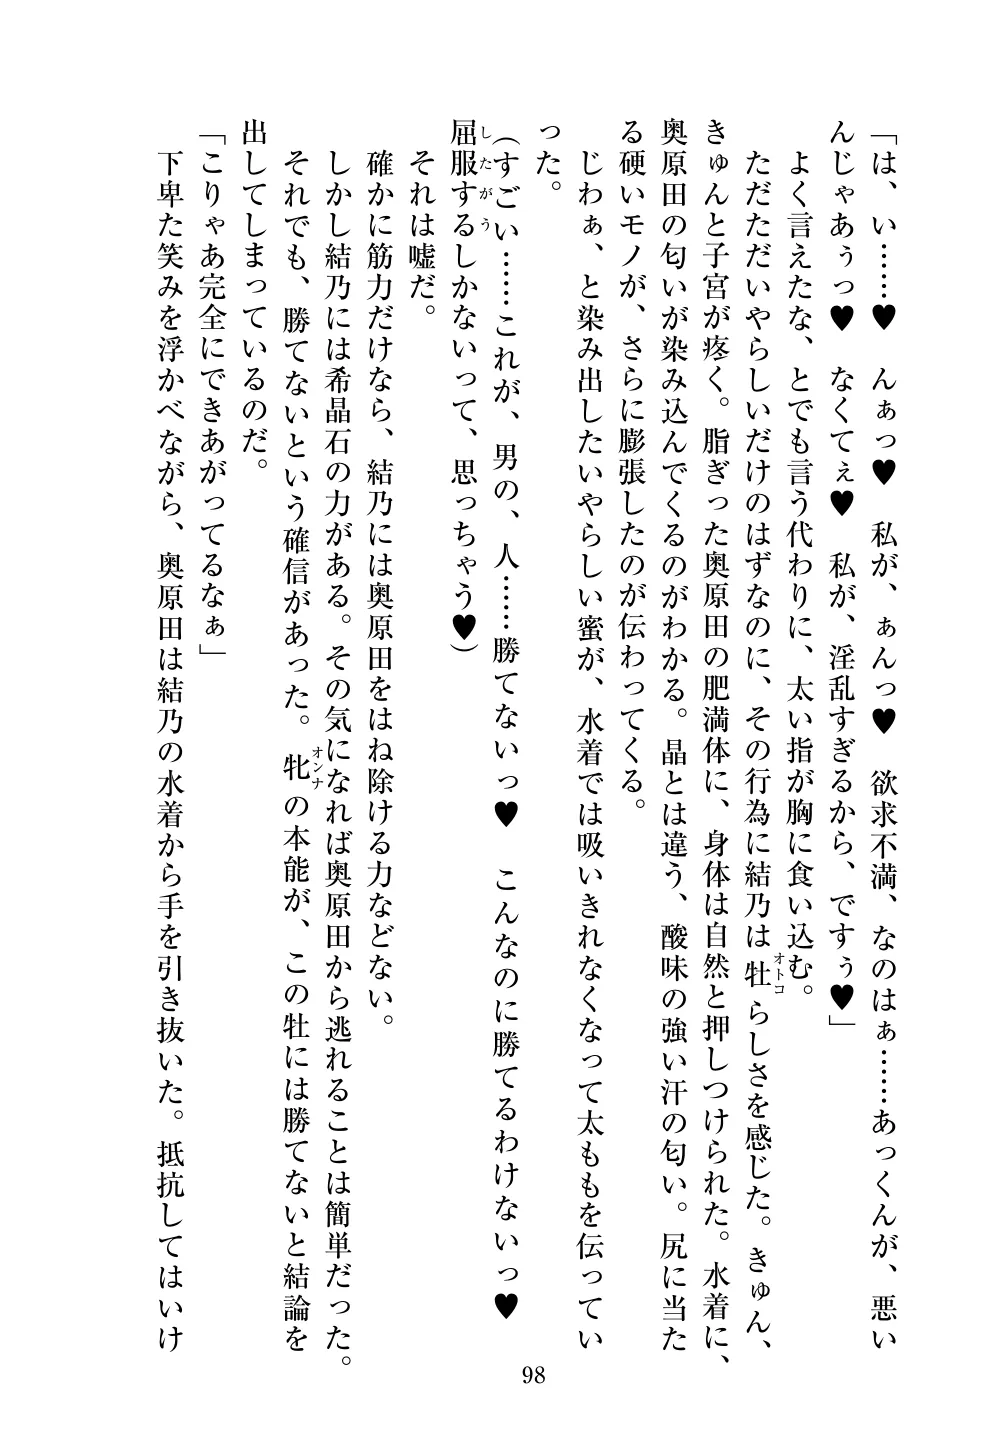 「は、い……♥　んぁっ♥　私が、ぁんっ♥　欲求不満、なのはぁ……あっくんが、悪い
んじゃあぅっ♥　なくてぇ♥　私が、淫乱すぎるから、ですぅ♥」
よく言えたな、とでも言う代わりに、太い指が胸に食い込む。
オトコ
ただただいやらしいだけのはずなのに、その行為に結乃は牡らしさを感じた。きゅん、
きゅんと子宮が疼く。脂ぎった奥原田の肥満体に、身体は自然と押しつけられた。水着に、
奥原田の匂いが染み込んでくるのがわかる。晶とは違う、酸味の強い汗の匂い。尻に当た
る硬いモノが、さらに膨張したのが伝わってくる。
じわぁ、と染み出したいやらしい蜜が、水着では吸いきれなくなって太ももを伝ってい
った。
（すごい……これが、男の、人……勝てないっ♥　こんなのに勝てるわけないっ♥
したがう
屈服するしかないって、思っちゃう♥）
それは嘘だ。
確かに筋力だけなら、結乃には奥原田をはね除ける力などない。
しかし結乃には希晶石の力がある。その気になれば奥原田から逃れることは簡単だった。
オンナ
それでも、勝てないという確信があった。牝の本能が、この牡には勝てないと結論を
出してしまっているのだ。
「こりゃあ完全にできあがってるなぁ」
下卑た笑みを浮かべながら、奥原田は結乃の水着から手を引き抜いた。抵抗してはいけ
98